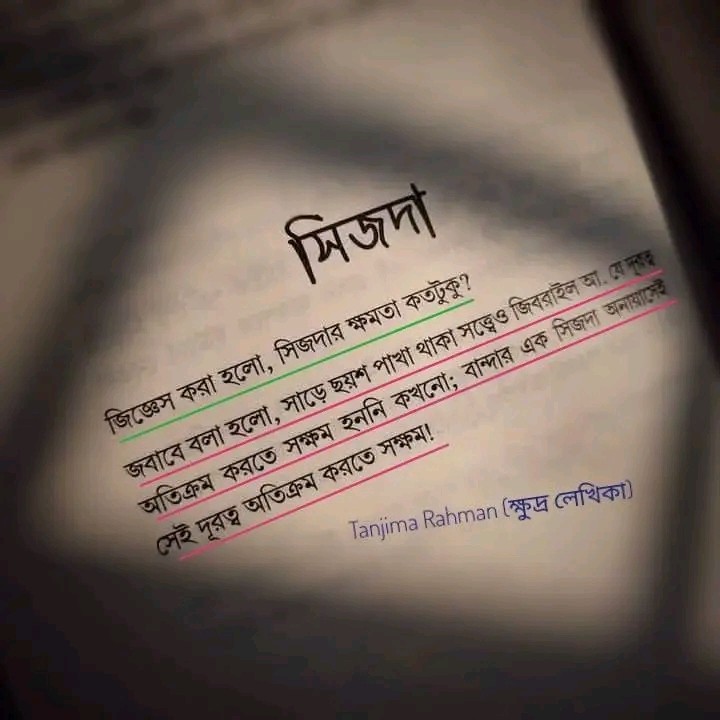 সিজদা
জিজ্ঞেস করা হলো, সিজদার ক্ষমতা কতটুকু?
জবাবে বলা হলো, সাড়ে ছয়শ পাখা থাকা সত্ত্বেও জিবরাইল আ. যে দূরত্ব
অতিক্রম করতে সক্ষম হননি কখনো; বান্দার এক সিজদা অনায়াসেই
সেই দূরত্ব অতিক্রম করতে সক্ষম!
Tanjima Rahman (ক্ষুদ্র লেখিকা)